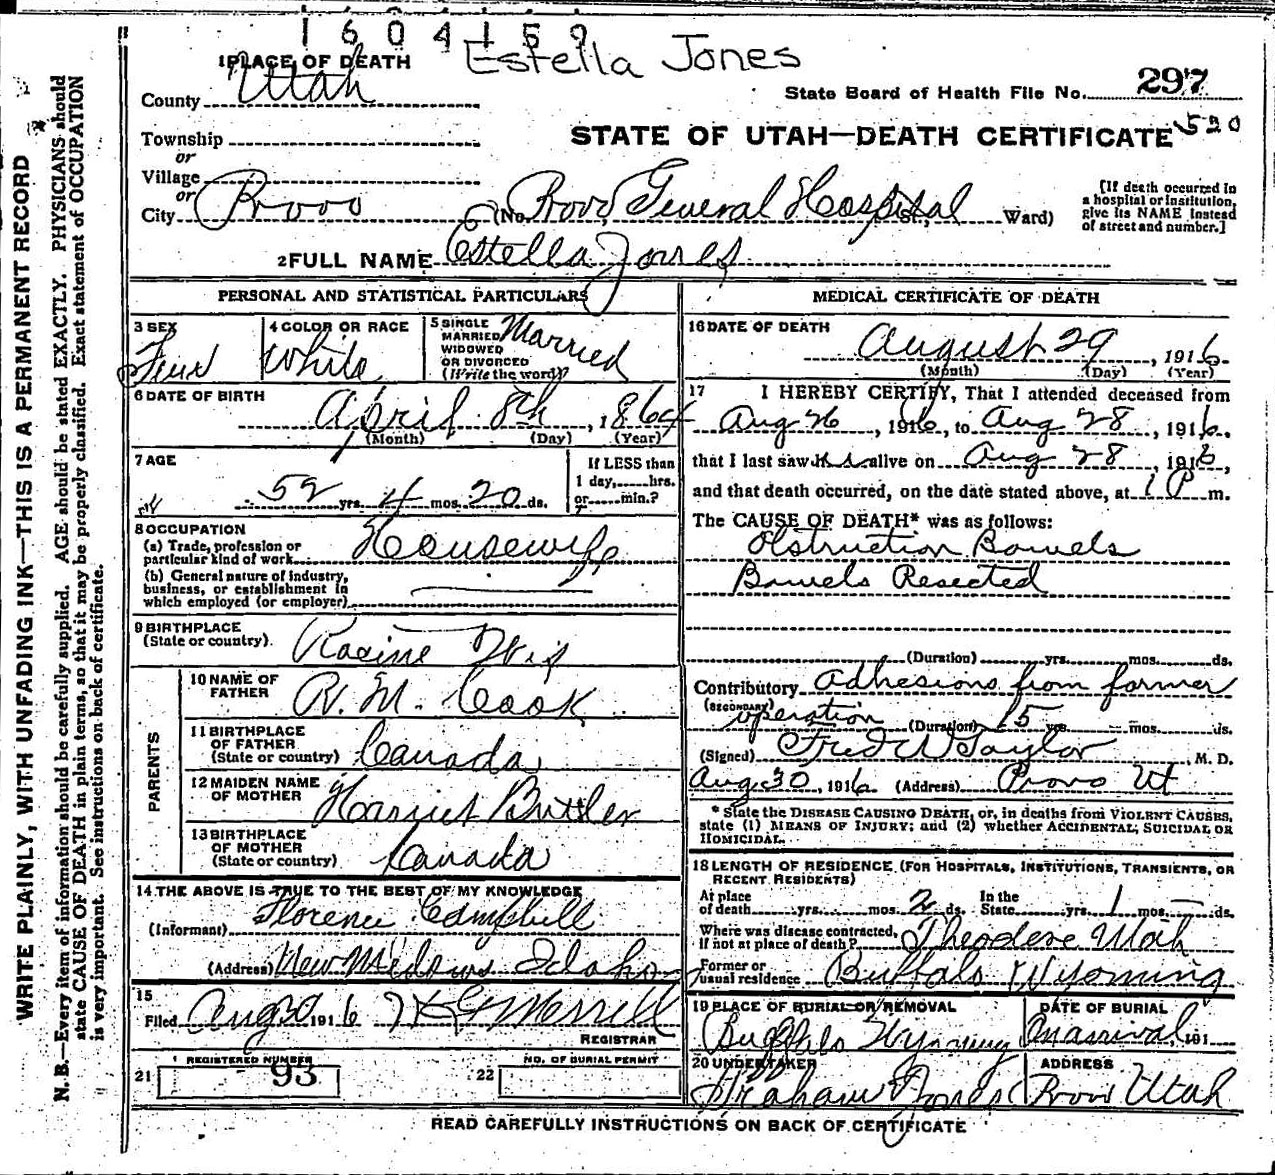 1604159
Estella Jones
1 PLACE OF DEATH
County Utah
State Board of Health File No. 297
Township
STATE OF UTAH—DEATH CERTIFICATE 520
or
Village
or
City Provo (No. Provo General Hospital St., Ward)
[If death occurred in
a hospital or institution,
give its NAME instead
of street and number.]
2 FULL NAME Estella Jones
PERSONAL AND STATISTICAL PARTICULARS
3 SEX
Fem
4 COLOR OR RACE
White
5 SINGLE
MARRIED
WIDOWED
OR DIVORCED
(Write the word)
Married
6 DATE OF BIRTH
April 8th, 1864
(Month) (Day) (Year)
7 AGE
52 yrs. 4 mos. 20 ds.
If LESS than
1 day, hrs.
or min.?
8 OCCUPATION
(a) Trade, profession or
particular kind of work Housewife
(b) General nature of industry,
business, or establishment in
which employed (or employer)
9 BIRTHPLACE
(State or country). Racine Wis
PARENTS
10 NAME OF
FATHER R. M. Cook
11 BIRTHPLACE
OF FATHER
(State or country) Canada
12 MAIDEN NAME
OF MOTHER Harriet Buttler
13 BIRTHPLACE
OF MOTHER
(State or country) Canada
14 THE ABOVE IS TRUE TO THE BEST OF MY KNOWLEDGE
(Informant) Florence Campbell
(Address) New Midows Idaho
15
Filed Aug 30 1916 Morrell
REGISTRAR
REGISTERED NUMBER
21 93
NO. OF BURIAL PERMIT
22
MEDICAL CERTIFICATE OF DEATH
16 DATE OF DEATH
August 29, 1916.
(Month) (Day) (Year)
17 I HEREBY CERTIFY, That I attended deceased from
Aug 26, 1916, to Aug 28, 1916.
that I last saw alive on Aug 28, 1916,
and that death occurred, on the date stated above, at 1 P m.
The CAUSE OF DEATH* was as follows:
Obstruction Bowels
Bowels Resected
(Duration) yrs. mos. ds.
Contributory Adhesions from former
(SECONDARY)
operation (Duration) 15 yrs. mos. ds.
(Signed) Fred W Taylor, M. D.
Aug 30, 1916 (Address) Provo Ut
* State the DISEASE CAUSING DEATH, or, in deaths from VIOLENT CAUSES,
state (1) MEANS OF INJURY; and (2) whether ACCIDENTAL, SUICIDAL OR
HOMICIDAL.
18 LENGTH OF RESIDENCE (FOR HOSPITALS, INSTITUTIONS, TRANSIENTS, OR
RECENT RESIDENTS)
At place
of death yrs. mos. 2 ds.
In the
State yrs. 1 mos. — ds.
Where was disease contracted,
if not at place of death? Theodore Utah
Former or
usual residence Buffalo Wyoming
19 PLACE OF BURIAL OR REMOVAL
Buffalo Wyoming
DATE OF BURIAL
On arrival, 191
20 UNDERTAKER
Graham Jones
ADDRESS
Provo Utah
READ CAREFULLY INSTRUCTIONS ON BACK OF CERTIFICATE
WRITE PLAINLY, WITH UNFADING INK—THIS IS A PERMANENT RECORD
N. B.—Every item of information should be carefully supplied. AGE should be stated EXACTLY. PHYSICIANS should
state CAUSE OF DEATH in plain terms, so that it may be properly classified. Exact statement of OCCUPATION
is very important. See instructions on back of certificate.